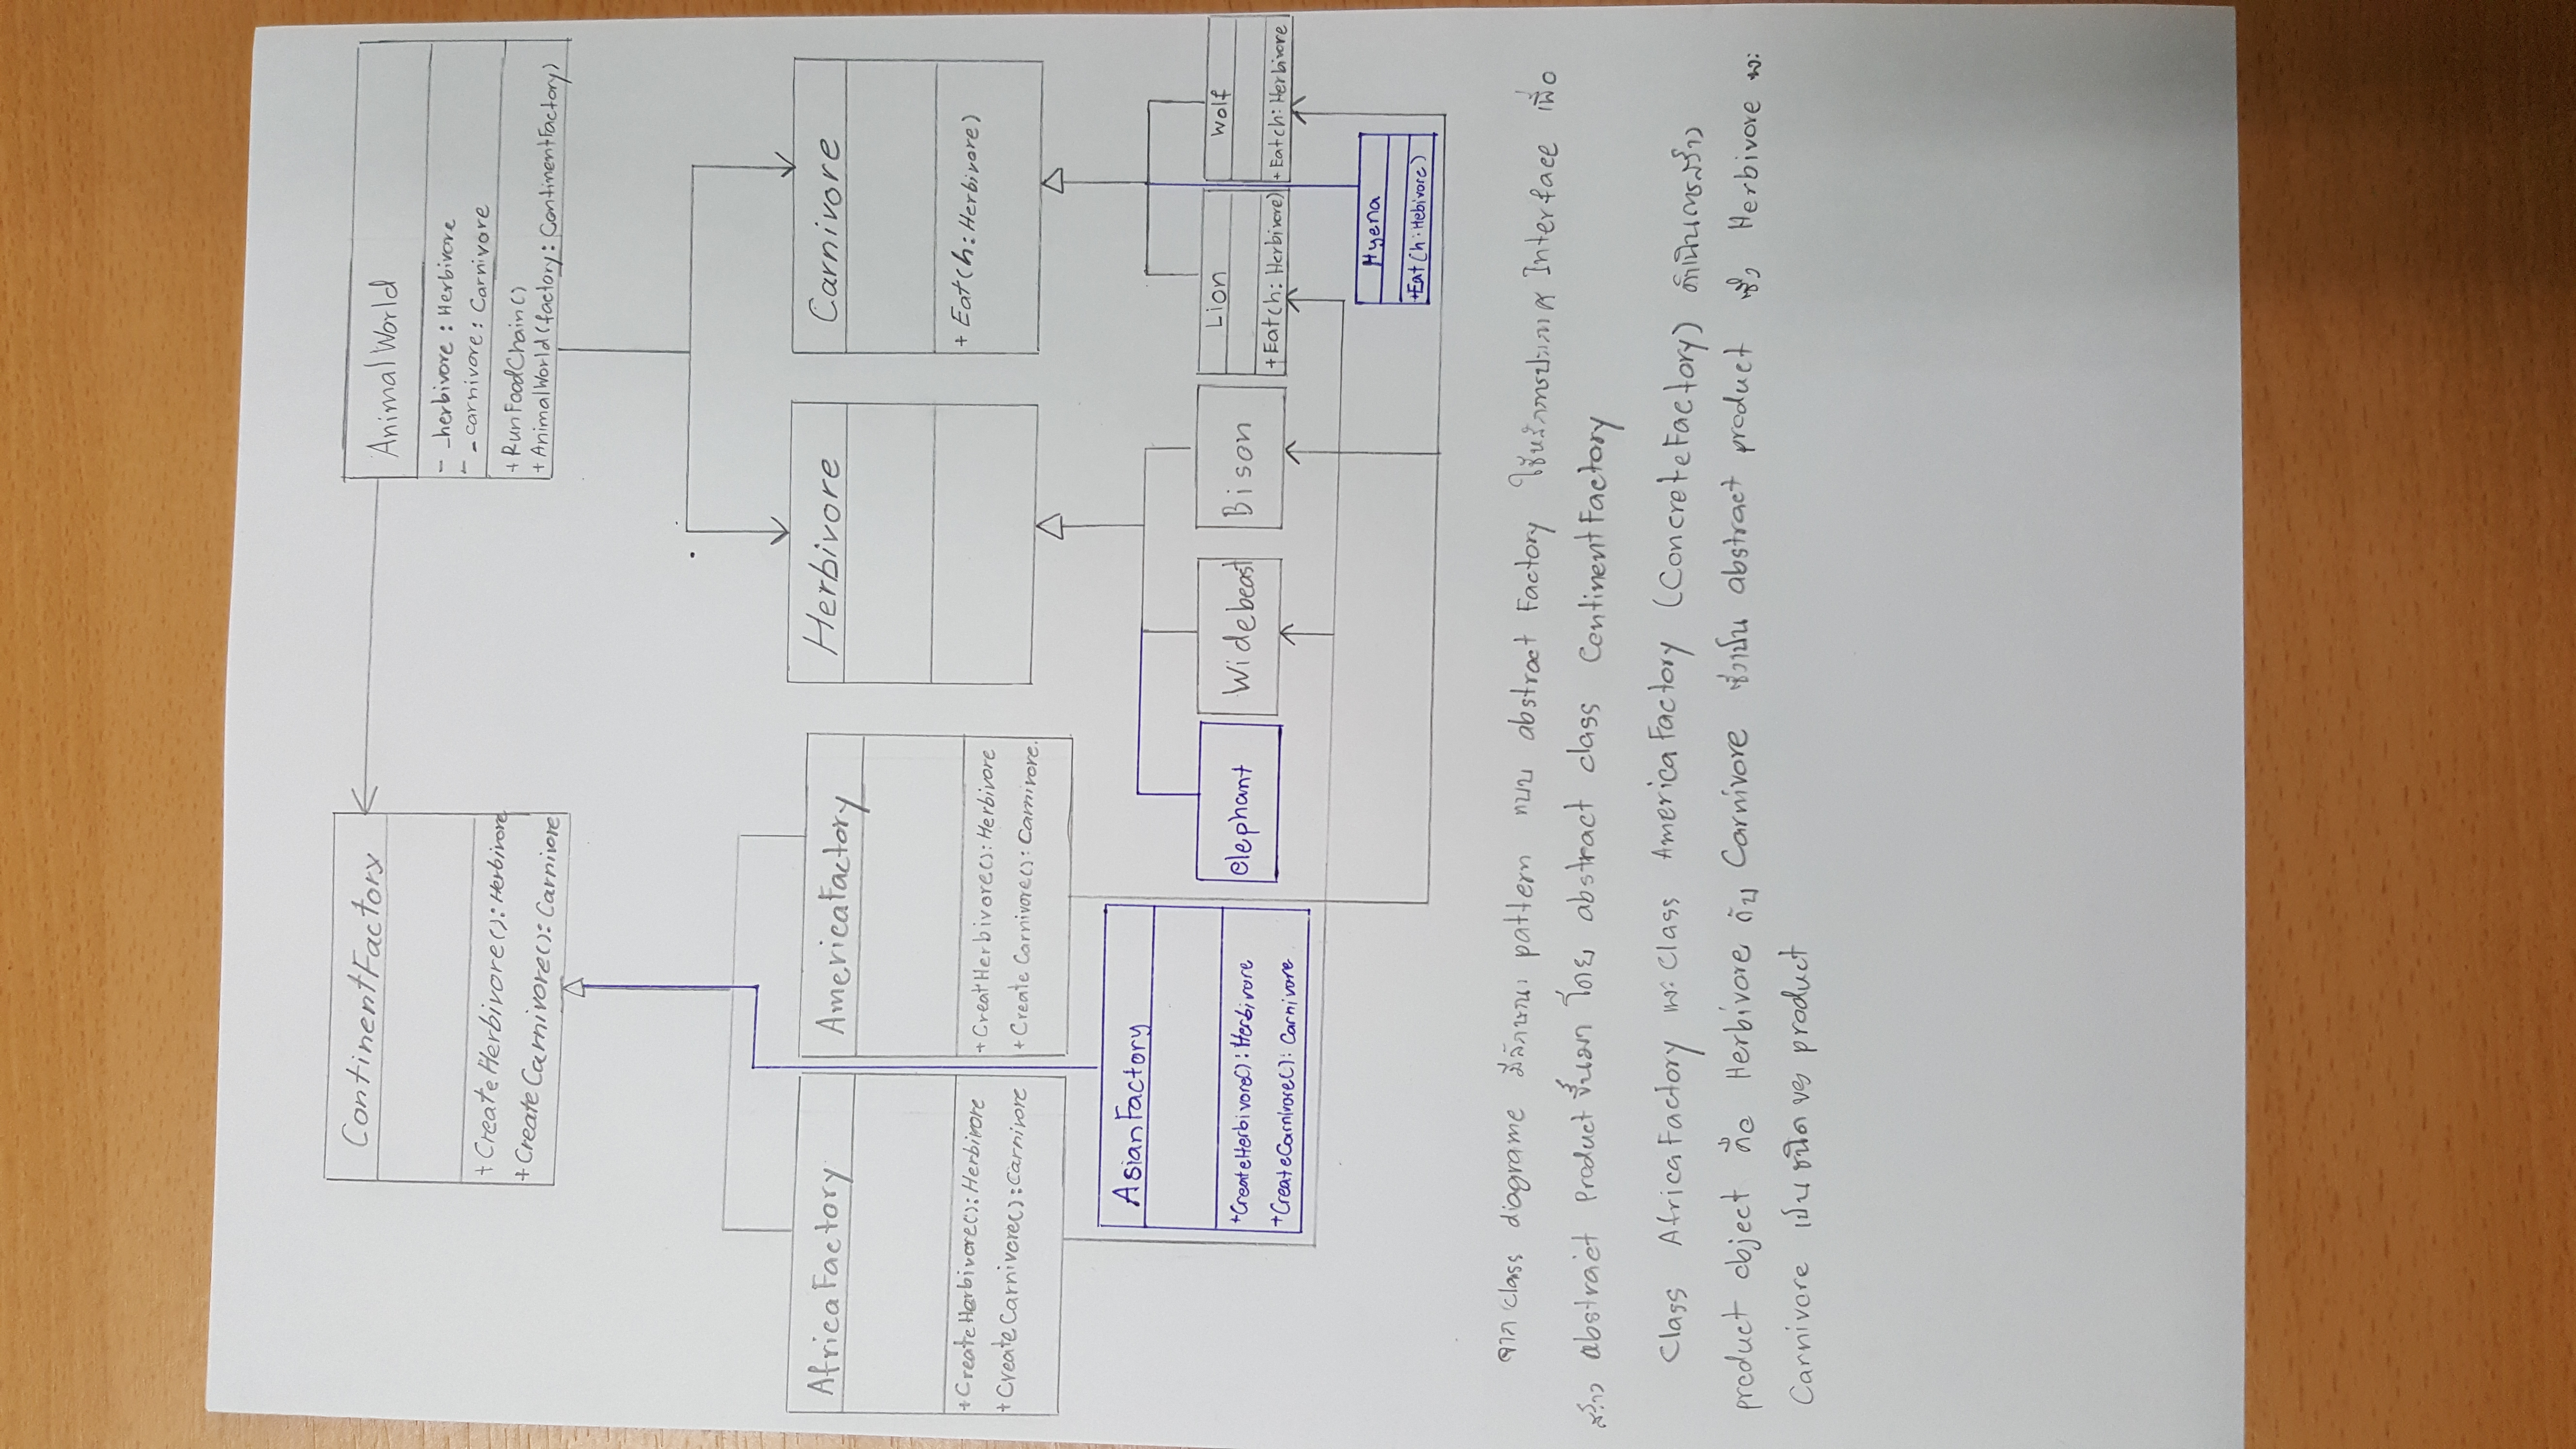 ContinentFactory
+ CreateHerbivore(): Herbivore
+ CreateCarnivore(): Carnivore
AnimalWorld
- _herbivore : Herbivore
- _carnivore : Carnivore
+ RunFoodChain()
+ AnimalWorld(factory: ContinentFactory)
AfricaFactory
+CreateHerbivore(): Herbivore
+CreateCarnivore(): Carnivore
AmericaFactory
+ CreatHerbivore(): Herbivore
+ Create Carnivore(): Carnivore.
Herbivore
Carnivore
+ Eat(h: Herbivore)
AsianFactory
+CreateHerbivore(): Herbivore
+CreateCarnivore(): Carnivore
elephant
Widebeast
Bison
Lion
+Eat(h: Herbivore)
Wolf
+Eatch: Herbivore
Hyena
+Eat(h: Hebivore)
จาก class diagrame มีลักษณะ pattern แบบ abstract Factory ใช้หลักการประกาศ Interface เพื่อ
สร้าง abstract Product ขึ้นมา โดย abstract class ContinentFactory
Class AfricaFactory และ Class AmericaFactory (ConcreteFactory) ดำเนินการสร้าง
product object คือ Herbivore กับ Carnivore ซึ่งเป็น abstract product ซึ่ง Herbivore และ
Carnivore เป็นชนิดของ product